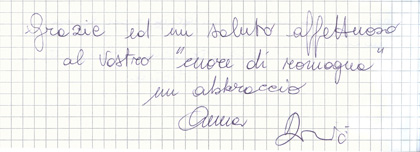 Grazie ed un saluto affettuoso
al vostro "cuore di romagna"
un abbraccio
Anna